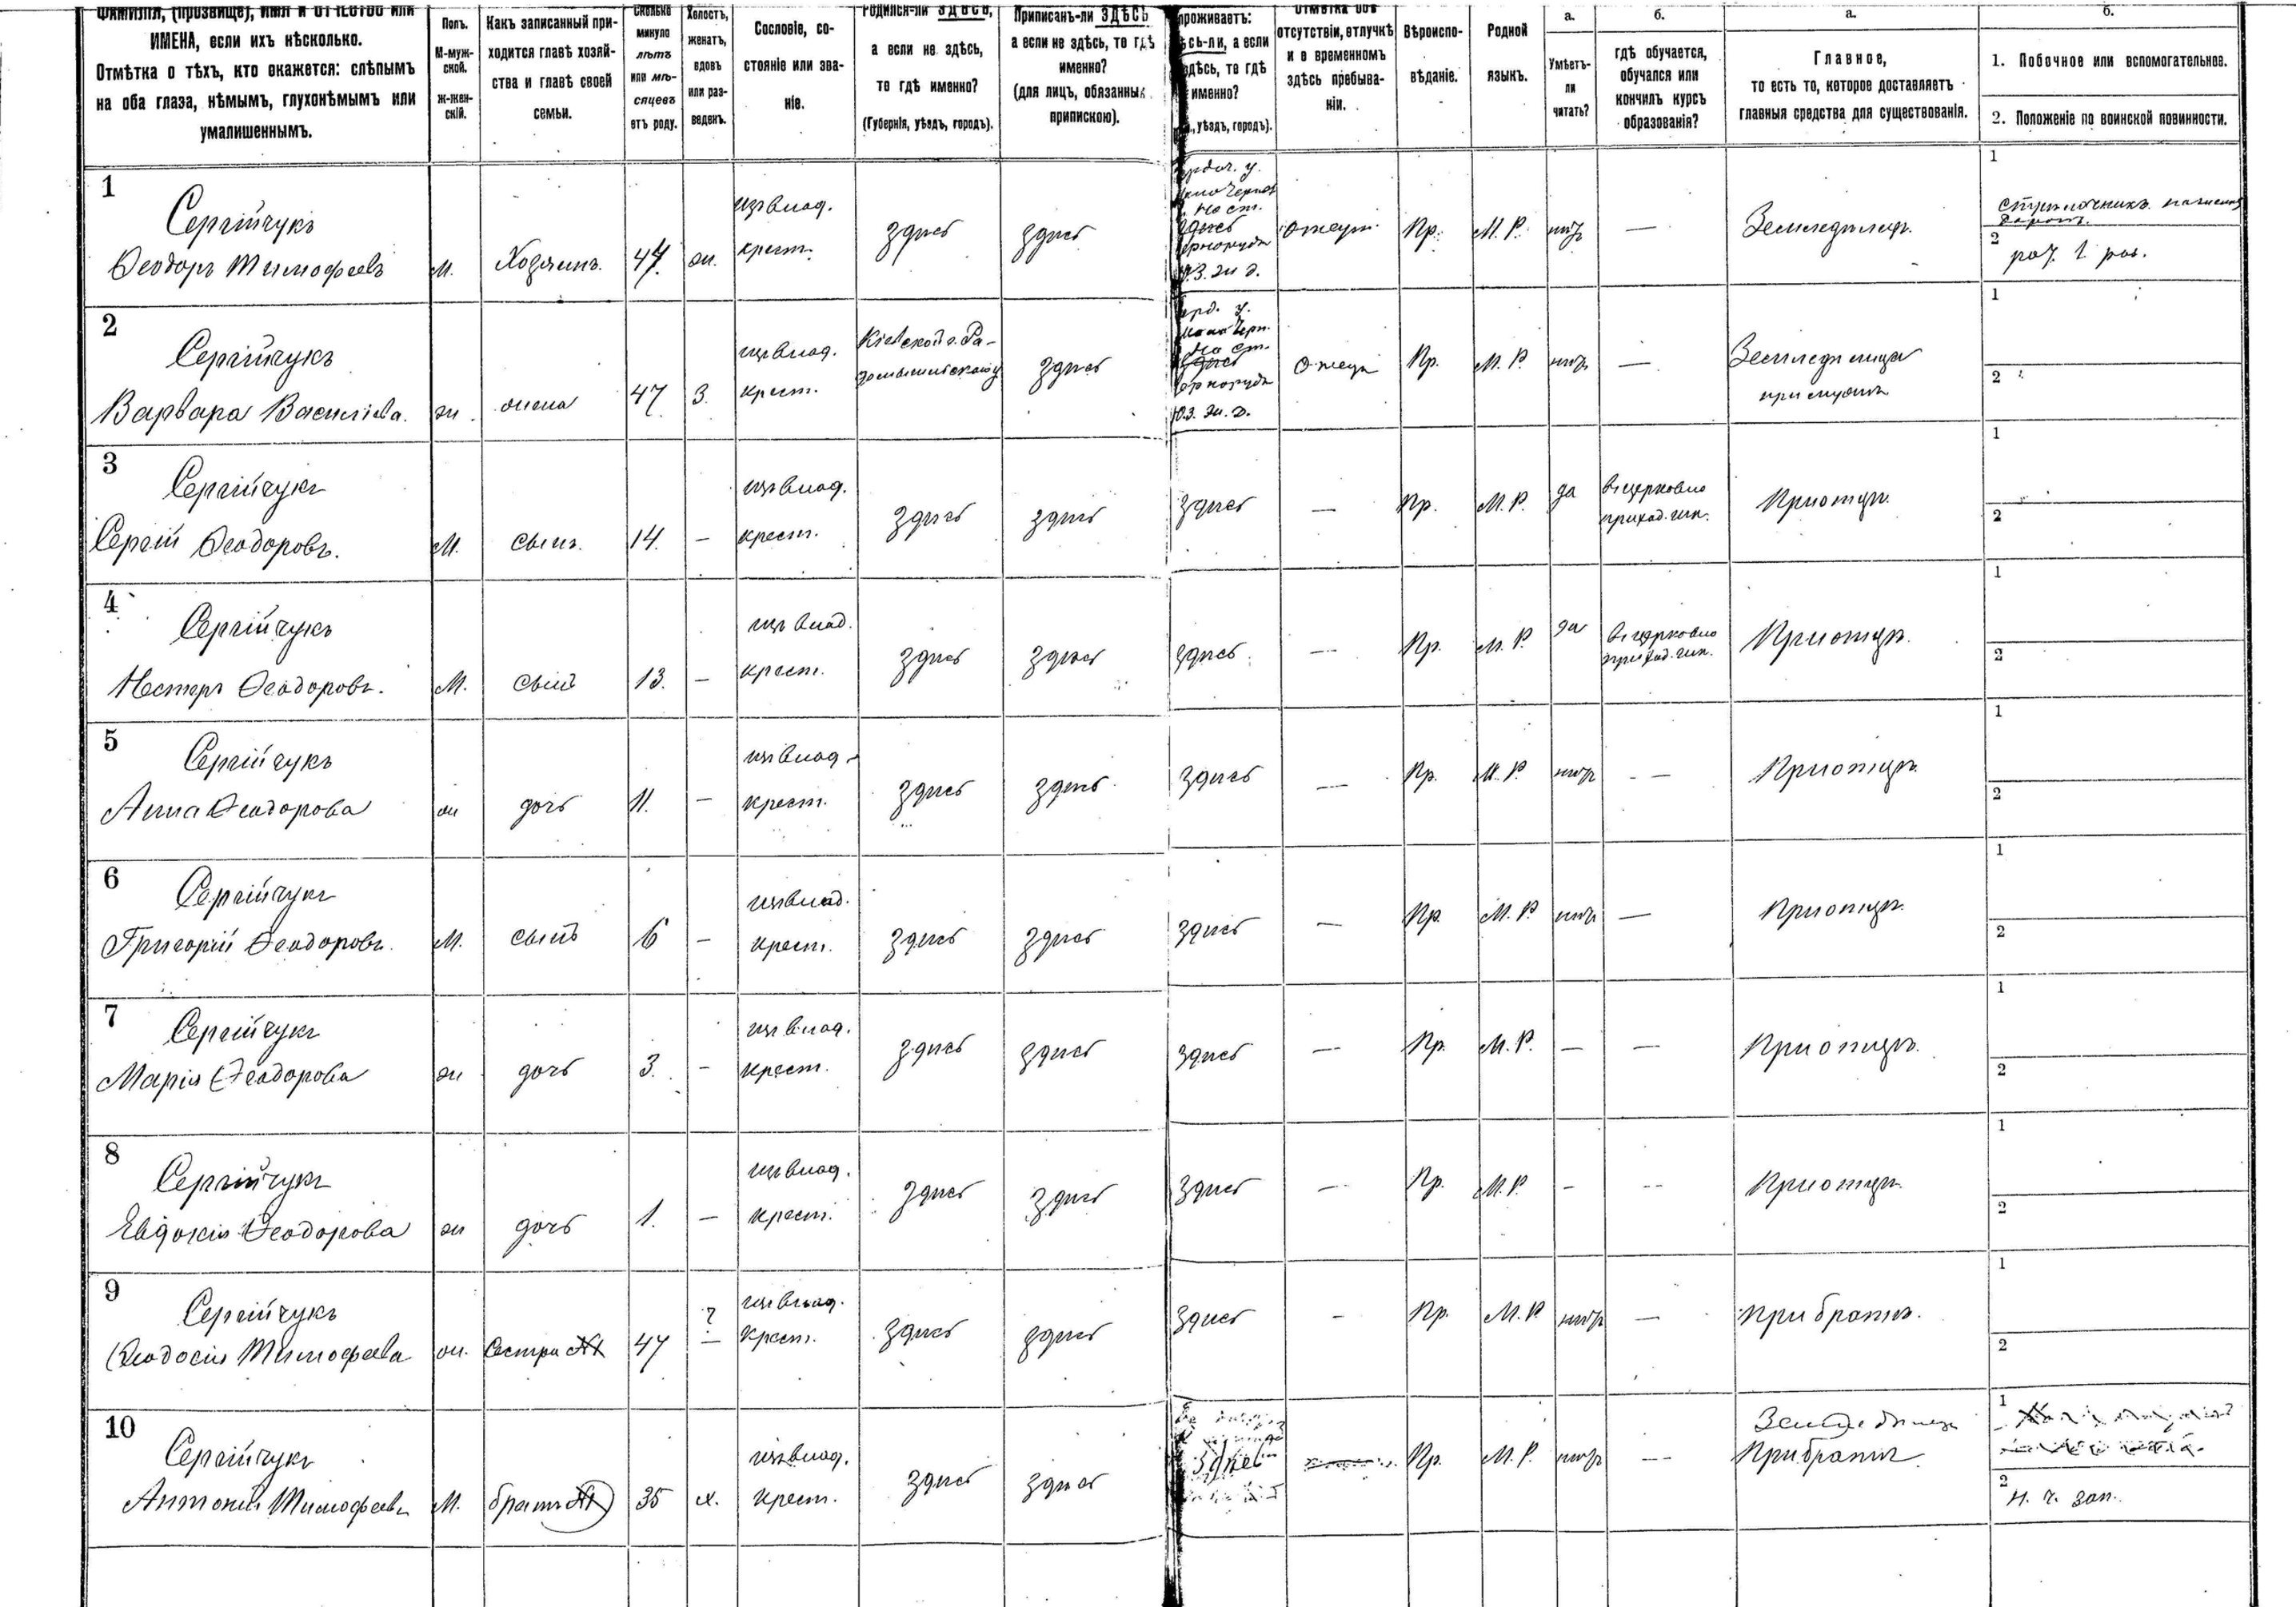 ФАМИЛІЯ, (прозвище), ИМЯ и ОТЧЕСТВО или
ИМЕНА, если ихъ нѣсколько.
Отмѣтка о тѣхъ, кто окажется: слѣпымъ
на оба глаза, нѣмымъ, глухонѣмымъ или
умалишеннымъ.
Полъ.
М-муж-
ской.
ж-жен-
скій.
Какъ записанный при-
ходится главѣ хозяй-
ства и главѣ своей
семьи.
Сколько
минуло
лѣтъ
или мѣ-
сяцевъ
отъ роду.
Холостъ,
женатъ,
вдовъ
или раз-
веденъ.
Сословіе, со-
стояніе или зва-
ніе.
Родился-ли ЗДѢСЬ,
а если не здѣсь,
то гдѣ именно?
(Губернія, уѣздъ, городъ).
Приписанъ-ли ЗДѢСЬ
а если не здѣсь, то гдѣ
именно?
(для лицъ, обязанныхъ
припискою).
проживаетъ:
сь-ли, а если
здѣсь, то гдѣ
именно?
, уѣздъ, городъ).
Отмѣтка объ
отсутствіи, отлучкѣ
и о временномъ
здѣсь пребыва-
ніи.
Вѣроиспо-
вѣданіе.
Родной
языкъ.
а.
Умѣетъ-
ли
читать?
б.
гдѣ обучается,
обучался или
кончилъ курсъ
образованія?
а.
Главное,
то есть то, которое доставляетъ
главныя средства для существованія.
б.
1. Побочное или вспомогательное.
2. Положеніе по воинской повинности.
1
Сергійчукъ
Ѳеодоръ Тимофеевъ
М. Хозяинъ. 44 ж.
изъ влад.
крест.
здѣсь здѣсь
на ст.
здѣсь
Ю.З. ж д.
Пр. М. Р. нѣтъ — Земледѣлец.
1
стрѣлочникъ
2
2
Сергійчукъ
Варвара Василіева.
ж. жена 47 З.
изъ влад.
крест.
Кіевской г. Ра-
домышльскаго у
здѣсь
на ст.
здѣсь
Ю.З. ж. д.
Пр. М. Р. нѣтъ —
Земледѣлица
при мужѣ
1
2
3
Сергійчукъ
Сергій Ѳеодоровъ.
М. сынъ. 14. —
изъ влад.
крест.
здѣсь здѣсь здѣсь — Пр. М. Р. да
въ церковно
приход. шк.
При отцѣ.
1
2
4
Сергійчукъ
Нестеръ Ѳеодоровъ.
М. сынъ 13. —
изъ влад.
крест.
здѣсь здѣсь здѣсь — Пр. М. Р. да
въ церковно
приход. шк.
При отцѣ.
1
2
5
Сергійчукъ
Анна Ѳеодорова
ж дочь 11. —
изъ влад.
крест.
здѣсь здѣсь здѣсь — Пр. М. Р. нѣтъ — При отцѣ.
1
2
6
Сергійчукъ
Григорій Ѳеодоровъ.
М. сынъ 6 —
изъ влад.
крест.
здѣсь здѣсь здѣсь — Пр. М. Р. нѣтъ — При отцѣ.
1
2
7
Сергійчукъ
Марія Ѳеодорова
ж дочь 3. —
изъ влад.
крест.
здѣсь здѣсь здѣсь — Пр. М. Р. — — При отцѣ.
1
2
8
Сергійчукъ
Евдокія Ѳеодорова
ж дочь 1. —
изъ влад.
крест.
здѣсь здѣсь здѣсь — Пр. М. Р. — — При отцѣ.
1
2
9
Сергійчукъ
Ѳеодосія Тимофеева
ж. Сестра 47 ? —
изъ влад.
крест.
здѣсь здѣсь здѣсь — Пр. М. Р. нѣтъ — При братѣ.
1
2
10
Сергійчукъ
Антоній Тимофеевъ
М. братъ 35 х.
изъ влад.
крест.
здѣсь здѣсь здѣсь Пр. М. Р. нѣтъ —
При братѣ
1
2
Н. ч. зап.